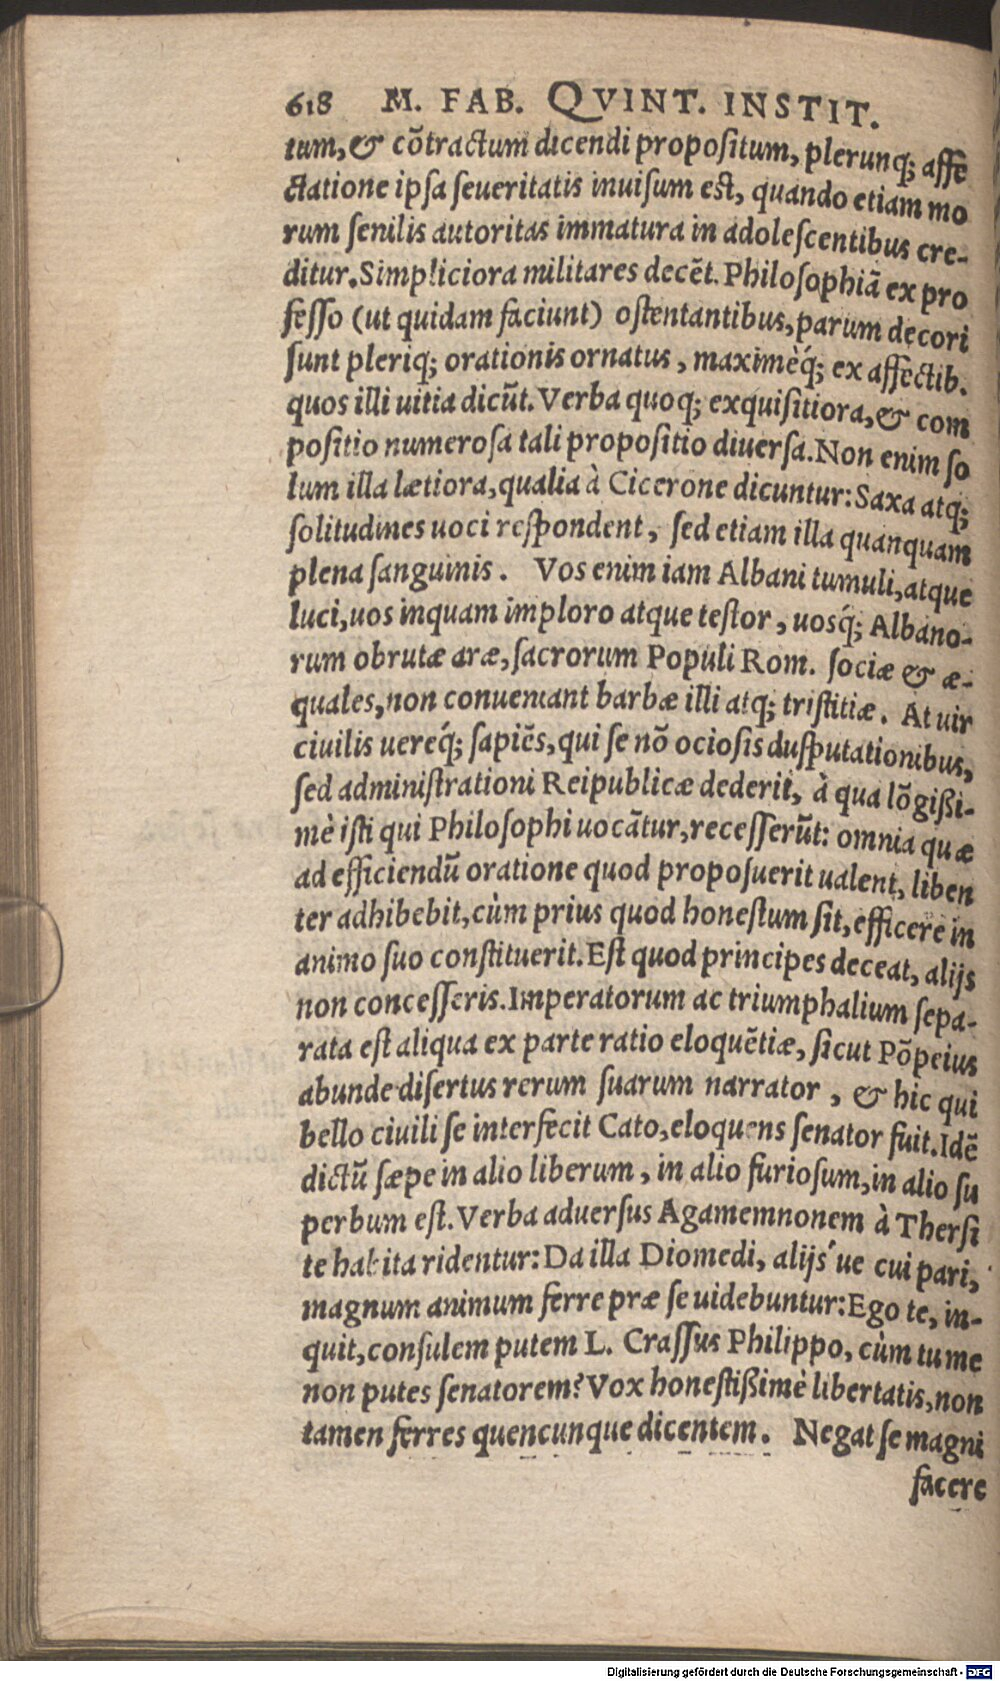 618 M. FAB. QVINT. INSTIT.
tum, & cõtractum dicendi propoſitum, plerunq; affe
ctatione ipſa ſeueritatis inuiſum eſt, quando etiam mo
rum ſenilis autoritas immatura in adoleſcentibus cre-
ditur. Simpliciora militares decẽt. Philoſophiã ex pro
feſſo (ut quidam faciunt) oſtentantibus, parum decori
ſunt pleriq; orationis ornatus, maximèq́; ex affectib.
quos illi uitia dicũt. Verba quoq; exquiſitiora, & com
poſitio numeroſa tali propoſitio diuerſa. Non enim ſo
lum illa lætiora, qualia à Cicerone dicuntur: Saxa atq;
ſolitudines uoci reſpondent, ſed etiam illa quanquam
plena ſanguinis. Vos enim iam Albani tumuli, atque
luci, uos inquam imploro atque teſtor, uosq́; Albano-
rum obrutæ aræ, ſacrorum Populi Rom. ſociæ & æ-
quales, non conueniant barbæ illi atq; triſtitiæ. At uir
ciuilis uereq́; ſapiẽs, qui ſe nõ ocioſis duſputationibus,
ſed adminiſtrationi Reipublicæ dederit, à qua lõgißi-
mè iſti qui Philoſophi uocãtur, receſſerũt: omnia quæ
ad efficiendũ oratione quod propoſuerit ualent, liben
ter adhibebit, cùm prius quod honeſtum ſit, efficere in
animo ſuo conſtituerit. Eſt quod principes deceat, alijs
non conceſſeris. Imperatorum ac triumphalium ſepa-
rata eſt aliqua ex parte ratio eloquẽtiæ, ſicut Põpeius
abunde diſertus rerum ſuarum narrator, & hic qui
bello ciuili ſe interfecit Cato, eloquens ſenator fuit. Idẽ
dictũ ſæpe in alio liberum, in alio furioſum, in alio ſu
perbum eſt. Verba aduerſus Agamemnonem à Therſi
te habita ridentur: Da illa Diomedi, alijs'ue cui pari,
magnum animum ferre præ ſe uidebuntur: Ego te, in-
quit, conſulem putem L. Craſſus Philippo, cùm tu me
non putes ſenatorem? Vox honeſtißimè libertatis, non
tamen ferres quencunque dicentem. Negat ſe magni
facere
Digitalisierung gefördert durch die Deutsche Forschungsgemeinschaft - DFG